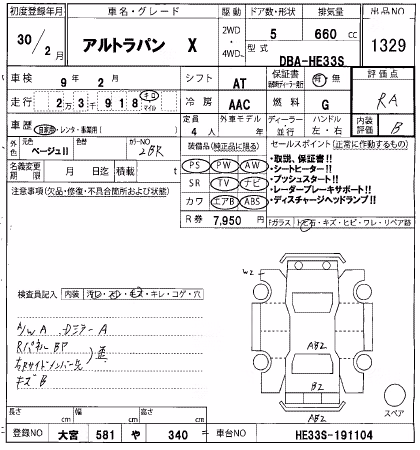 初度登録年月 車名・グレード 駆動 ドア数・形状 排気量 出品NO
30/2月 アルトラパン X 2WD・4WD 5 660 cc 1329
型式 DBA-HE33S
車検 9年2月 シフト AT 保証書 有・無 評価点
走行 2万3千918 キロ マイル 冷房 AAC 燃料 G RA
車歴 自家用・レンタ・事業用 定員 4人 外車モデル 年 ディーラー 並行 ハンドル 左・右 内装評価 B
外色 元色 ベージュII 色替 カラーNO 2BR
装備品(純正品に限る) セールスポイント(正常に作動するもの)
名義変更期限 月 日迄 積載 t
PS PW AW
SR TV ナビ
カワ エアB ABS
・取説、保証書!!
・シートヒーター!!
・プッシュスタート!!
・レーダーブレーキサポート!!
・ディスチャージヘッドランプ!!
注意事項(欠品・修復・不具合箇所および状態)
R券 7,950円
Fガラス トビ石・キズ・ヒビ・ワレ・リペア跡
検査員記入 内装 汚レ・スレ・キズ・キレ・コゲ・穴
W2
A/W A Dミラー A
RパネルBP
キズB
AB2
B2
AB2
スペア
長さ cm 幅 cm 高さ cm
登録NO 大宮 581 や 340 車台NO HE33S-191104